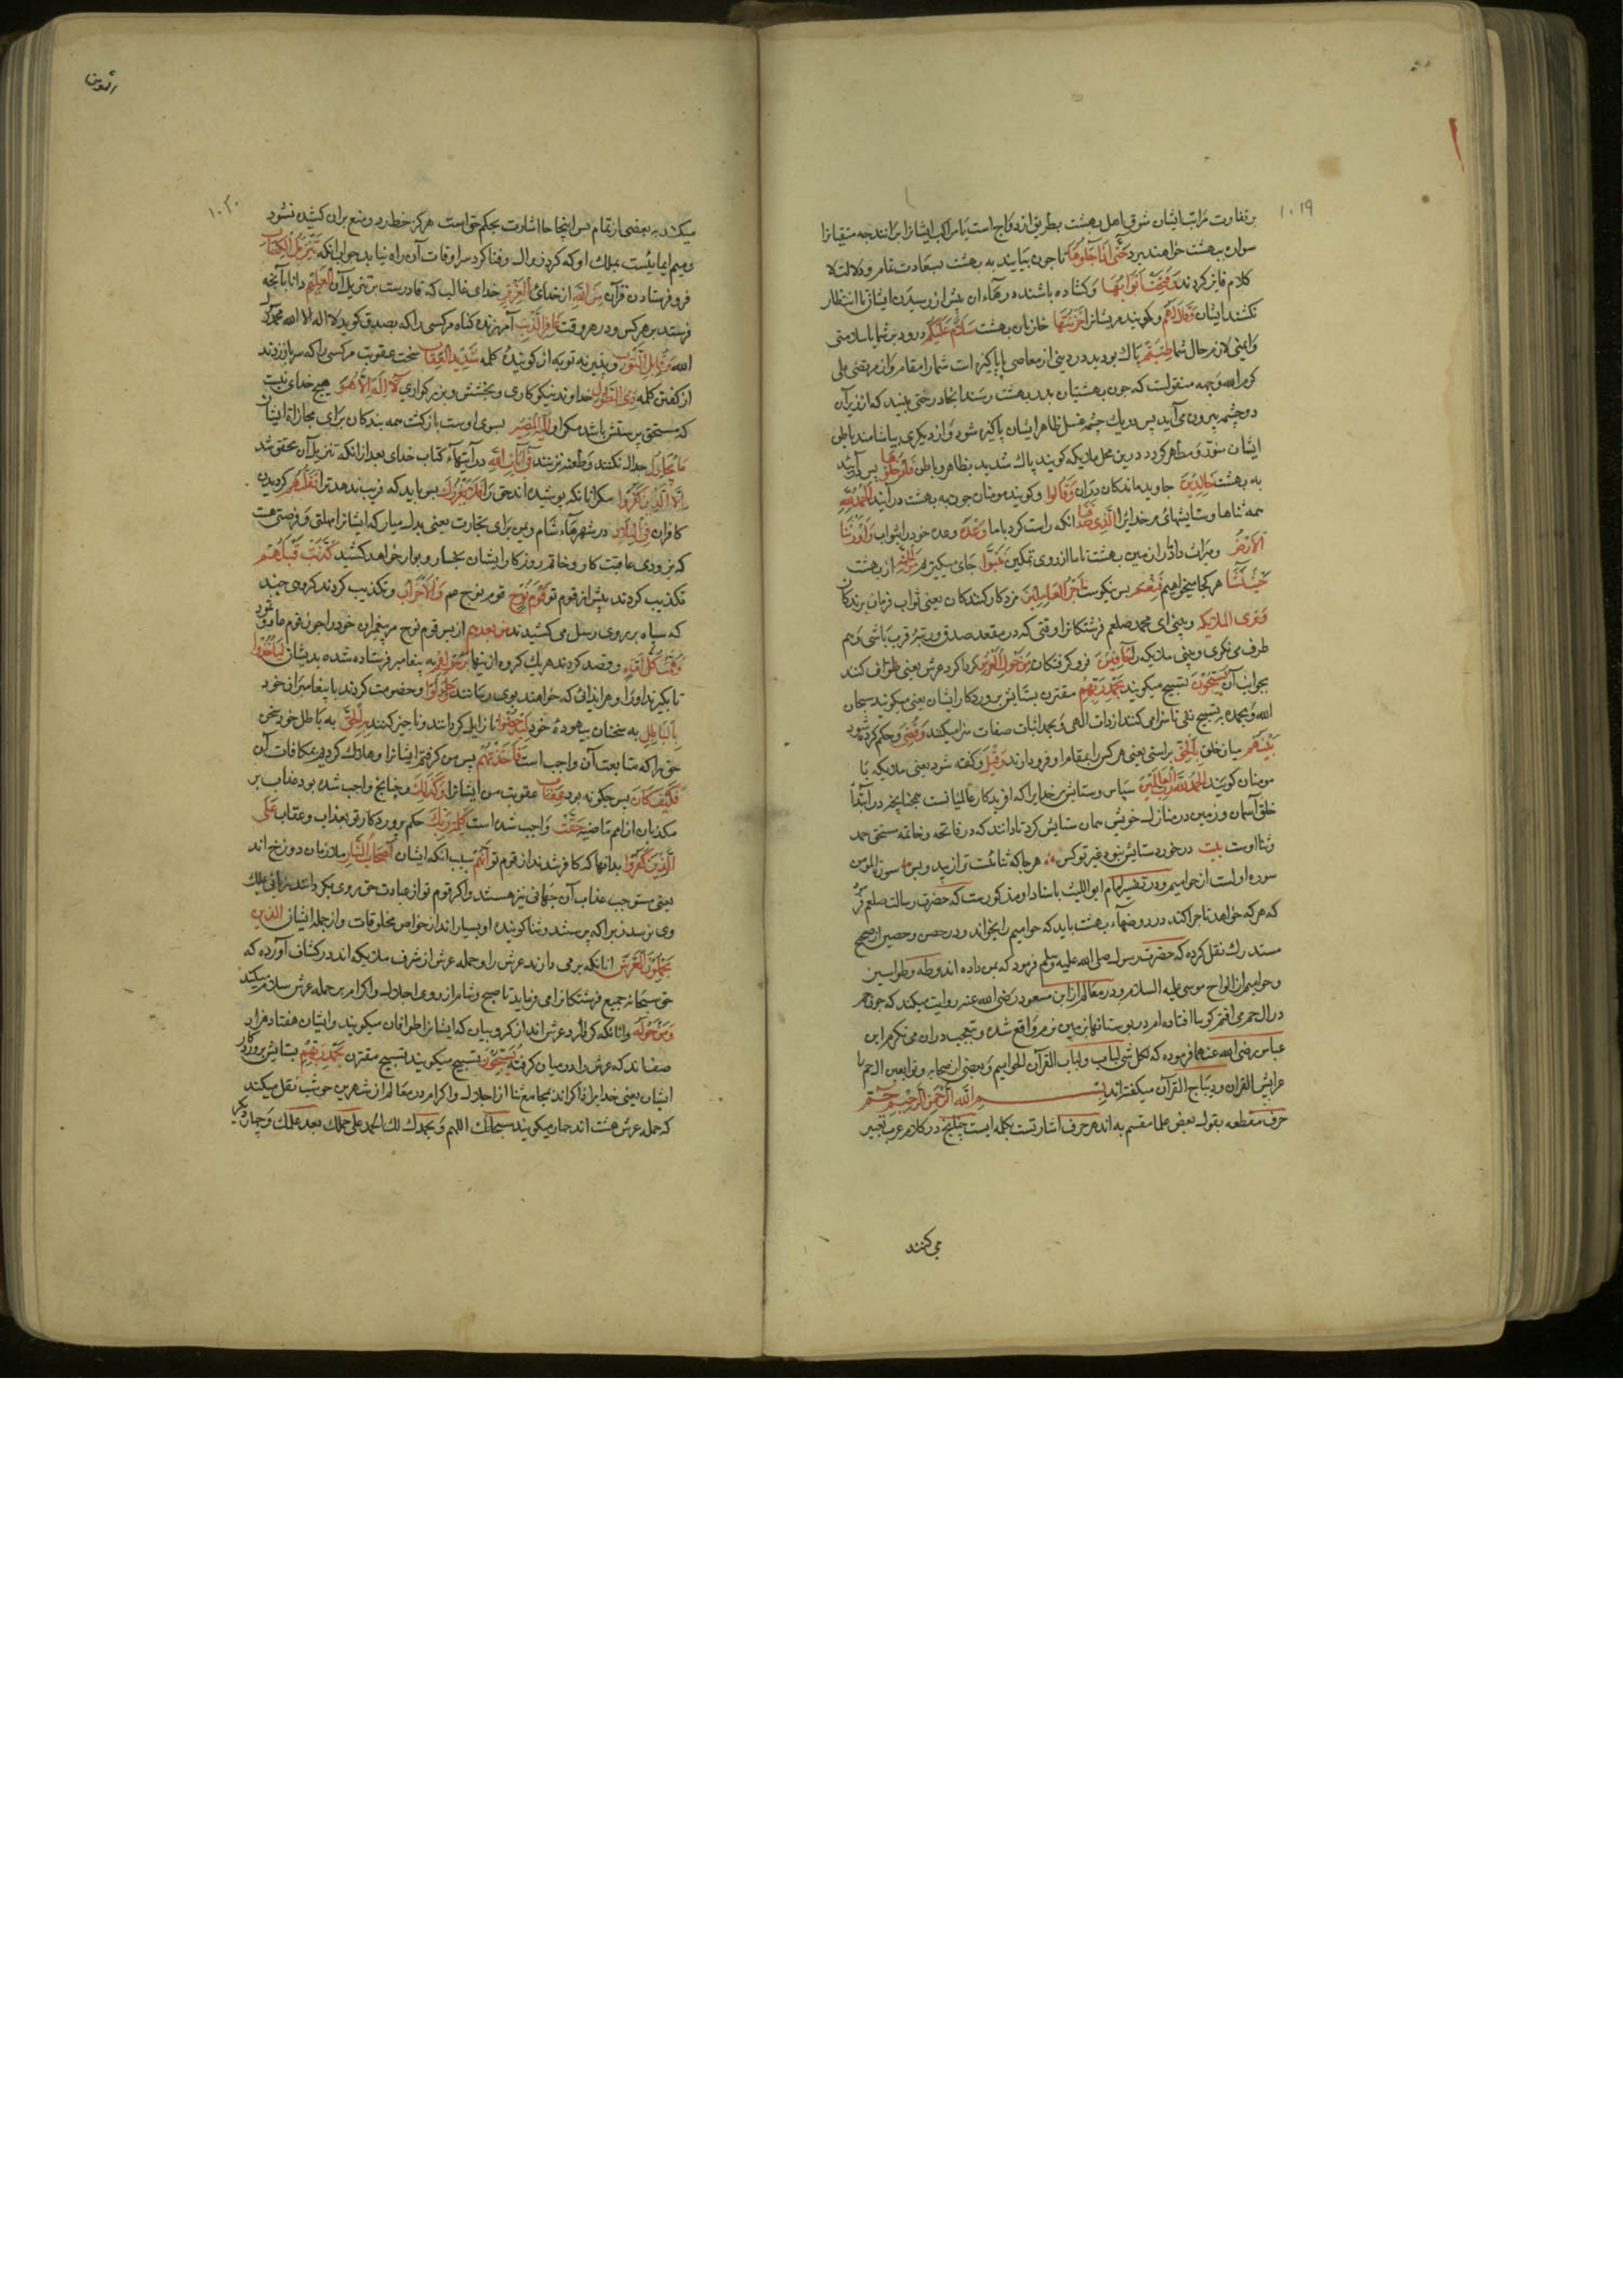 ۱۰۱۹
و تفاوت مراتب ایشان شوق اهل بهشت بطریق ازدواج است یا مراکب ایشانرا برانند چه متقیانرا
سواره ببهشت خواهند برد حَتّی اِذا جاؤُها تا چون بیایند به بهشت بسعادت مقام و دلالت لا
کلام فایز کردند وَ فُتِحَت اَبوابُها و کشاده باشند درهاء ان پیش از رسیدن ایشان تا انتظار
نکشند ایشان وَ قالَ لَهُم و کویند مر یشانرا خَزَنَتُها خازنان بهشت سَلامٌ عَلَیکُم درود بر شما با سلامتی
و ایمنی لازم حال شما طِبتُم پاک بودید در دنیی از معاصی یا پاکیزه است شما را مقام و از مرتضی علی
کرم الله وجهه منقولست که چون بهشتیان بدر بهشت رسند انجا درختی بینند که از زیر آن
دو چشمه بیرون می آید پس در یک چشمه غسل ظاهر ایشان پاکیزه شود و از دیکری بیاشامند باطن
ایشان منور و مطهر کردد درین محل ملایکه کویند پاک شدید بظاهر و باطن فَادخُلوها پس درآیید
به بهشت خالِدینَ جاوید ماندکان دران وَ قالُوا و کویند مومنان چون به بهشت درآیند اَلحَمدُ لِلّهِ
همه ثناها و ستایشهای مر خدایرا اَلَّذی صَدَقَنا انکه راست کرد با ما وَعدَهُ وعده خود را بثواب وَ اَورَثَنَا
الاَرضَ و میراث داد ما را زمین بهشت تا ما از روی تمکین نَتَبَوَّأُ جای میکیریم مِنَ الجَنَّةِ از بهشت
حَیثُ نَشاءُ هر کجا میخواهیم فَنِعمَ پس نیکوست اَجرُ العامِلینَ مزد کار کنندکان یعنی ثواب فرمان برندکان
وَ تَرَی المَلائِکَةَ و بینی ای محمد صلعم فرشتکانرا وقتی که در مقعد صدق و مرتبه قرب باشی و بهم
طرف می نکری و بینی ملایکه را حافّینَ فرو کرفتکان مِن حَولِ العَرشِ کرداکرد عرش یعنی طواف کنند
بجوانب آن یُسَبِّحونَ تسبیح میکویند بِحَمدِ رَبِّهِم مقترن بستایش پروردکار ایشان یعنی میکویند سبحان
الله و بحمده بتسبیح نفی ناسزا می کنند از ذات الهی و بحمد اثبات صفات سزا میکنند وَ قُضِیَ و حکم کرده شود
بَینَهُم میان خلق بِالحَقِّ براستی یعنی هر کس را بمقام او فرود ارند وَ قیلَ و کفته شود یعنی ملایکه یا
مومنان کویند اَلحَمدُ لِلّهِ رَبِّ العالَمینَ سپاس و ستایش مر خدایرا که افریدکار عالمیانست همچنانچه در ابتداء
خلق آسمان و زمین در منازل خویش همان ستایش کرد تا دانند که در فاتحه و خاتمه مستحق حمد
و ثنا اوست بیت در خورد ستایش نبود غیر تو کس هر جا که ثنائست ترا زیبد و بس سورة المومن
سوره اولست از حوامیم و در تفسیر امام ابو اللیث باسناد او مذکورست که حضرت رسالت صلعم فرمود
که هر که خواهد تا چرا کند در روضهاء بهشت باید که حوامیم را بخواند و در حصن حصین از صحیح
مستدرک نقل کرده که حضرت رسول صلی الله علیه وسلم فرمود که بمن داده اند وطه وطواسین
وحوامیم از الواح موسی علیه السلام و در معالم از ابن مسعود رضی الله عنه روایت میکند که چون من
در ال حم می افتم کویا افتاده ام در بوستانها نرمین نرم واقع شده و تعجب در ان می نکرم ابن
عباس رضی الله عنهما فرموده که لکل شی لباب و لباب القرآن الحوامیم و بعضی از صحابه و توابعین الحم را
عرایس القران و دیباج القرآن میکفته اند بسم الله الرحمن الرحیم حم
حرف مقطعه بقول بعض علما مقسم به اند هر حرف اشارتست بکلمه ایست چنانچه در کلام عرب تعبیر
می کنند
۱۰۲۰
میکنند به بعضی از تمام پس اینجا حا اشارت بحکم حق است هرکز خط رد و منع بران کشیده نشود
و میم ایمایست بملک او که کرد زوال و فنا کرد سرادقات آن راه نیابد جواب انکه تَنزیلُ الکِتابِ
فرو فرستادن قرآن مِنَ اللهِ از خدای اَلعَزیزِ خدای غالب که قادرست بر تنزیل آن اَلعَلیمِ دانا بآنچه
فرستد بر هر کس و در هر وقت غافِرِ الذَّنبِ آمرزنده کناه مر کسی را که بصدق کوید لا اله الا الله محمد رسول
الله وَ قابِلِ التَّوبِ و پذیرنده توبه از کوینده کلمه شَدیدِ العِقابِ سخت عقوبت مر کسی را که سر باز زند
از کفتن کلمه ذِی الطَّولِ خداوند نیکوکاری و بخشش و بزرکواری لا اِلهَ اِلّا هُوَ هیچ خدای نیست
که مستحق پرستش باشد مکر او اِلَیهِ المَصیرُ بسوی اوست بازکشت همه بندکان برای مجازاة ایشان
ما یُجادِلُ جدال نکنند و طعنه نزنند فی آیاتِ اللهِ در آیتهاء کتاب خدای بعد از انکه تنزیل آن محقق شد
اِلَّا الَّذینَ کَفَروا مکر انانکه پوشیده اند حق را فَلا یَغرُرکَ پس باید که فریب ندهد ترا تَقَلُّبُهُم کردیدن
کافران فِی البِلادِ در شهرهاء شام و یمن برای تجارت یعنی بدل میار که ایشانرا مهلتی و فرصتی هست
که بزودی عاقبت کار و خاتمه روزکار ایشان بخسار و بوار خواهد کشید کَذَّبَت قَبلَهُم
تکذیب کردند پیش از قوم تو قَومُ نُوحٍ قوم نوح عم وَ الاَحزابُ و تکذیب کردند کروهی چند
که سپاه بر روی رسل می کشیدند مِن بَعدِهِم از پس قوم نوح مر پیغمبران خود را چون قوم عاد و ثمود
وَ هَمَّت کُلُّ اُمَّةٍ و قصد کردند هر یک کروه از ینها بِرَسولِهِم به پیغامبر فرستاده شده بدیشان لِیَأخُذوهُ
تا بکیرند او را و هر ایذائی که خواهند بوی رسانند وَ جادَلوا و خصومت کردند با پیغامبران خود
بِالباطِلِ به سخنان بیهودهٔ خود لِیُدحِضوا تا زایل کردانند و ناچیز کنند بِهِ الحَقَّ به باطل خود سخن
حق را که متابعت آن واجب است فَاَخَذتُهُم پس من کرفتم ایشانرا و هلاک کردم بمکافات آن
فَکَیفَ کانَ پس چکونه بود عِقابِ عقوبت من ایشانرا وَ کَذلِکَ و چنانچه واجب شده بود عذاب بر
مکذبان از امم ماضیه حَقَّت واجب شده است کَلِمَةُ رَبِّکَ حکم پروردکار تو بعذاب و عقاب عَلَی
الَّذینَ کَفَروا بدانها که کافر شدند از قوم تو اَنَّهُم بسبب انکه ایشان اَصحابُ النّارِ ملازمان دوزخ اند
یعنی مستوجب عذاب آن جهانی نیز هستند و اکر قوم تو از عبادت حق روی بکردانند زیانی بملک
وی نرسد زیرا که پرستنده و ثنا کوینده او بسیار اند از خواص مخلوقات و از جمله ایشان اَلَّذینَ
یَحمِلونَ العَرشَ انانکه بر می دارند عرش را و حمله عرش از شرف ملایکه اند در کشاف آورده که
حق سبحانه جمیع فرشتکانرا می فرماید تا صبح و شام از روی اجلال و اکرام بر حمله عرش سلام میکنند
وَ مَن حَولَهُ و انانکه کرداکرد عرش اند از کروبیان که ایشانرا طوافان میکویند و ایشان هفتاد هزار
صف اند که عرش را در میان کرفته یُسَبِّحونَ تسبیح میکویند تسبیح مقترن بِحَمدِ رَبِّهِم بستایش پروردکار
ایشان یعنی خدایرا ذاکر اند بمجامع ثنا از اجلال و اکرام در معالم از شهر بن حوشب نقل میکند
که حمله عرش هشت اند چهار میکویند سبحانک اللهم و بحمدک لک الحمد علی حلمک بعد علمک و چهار دیکر